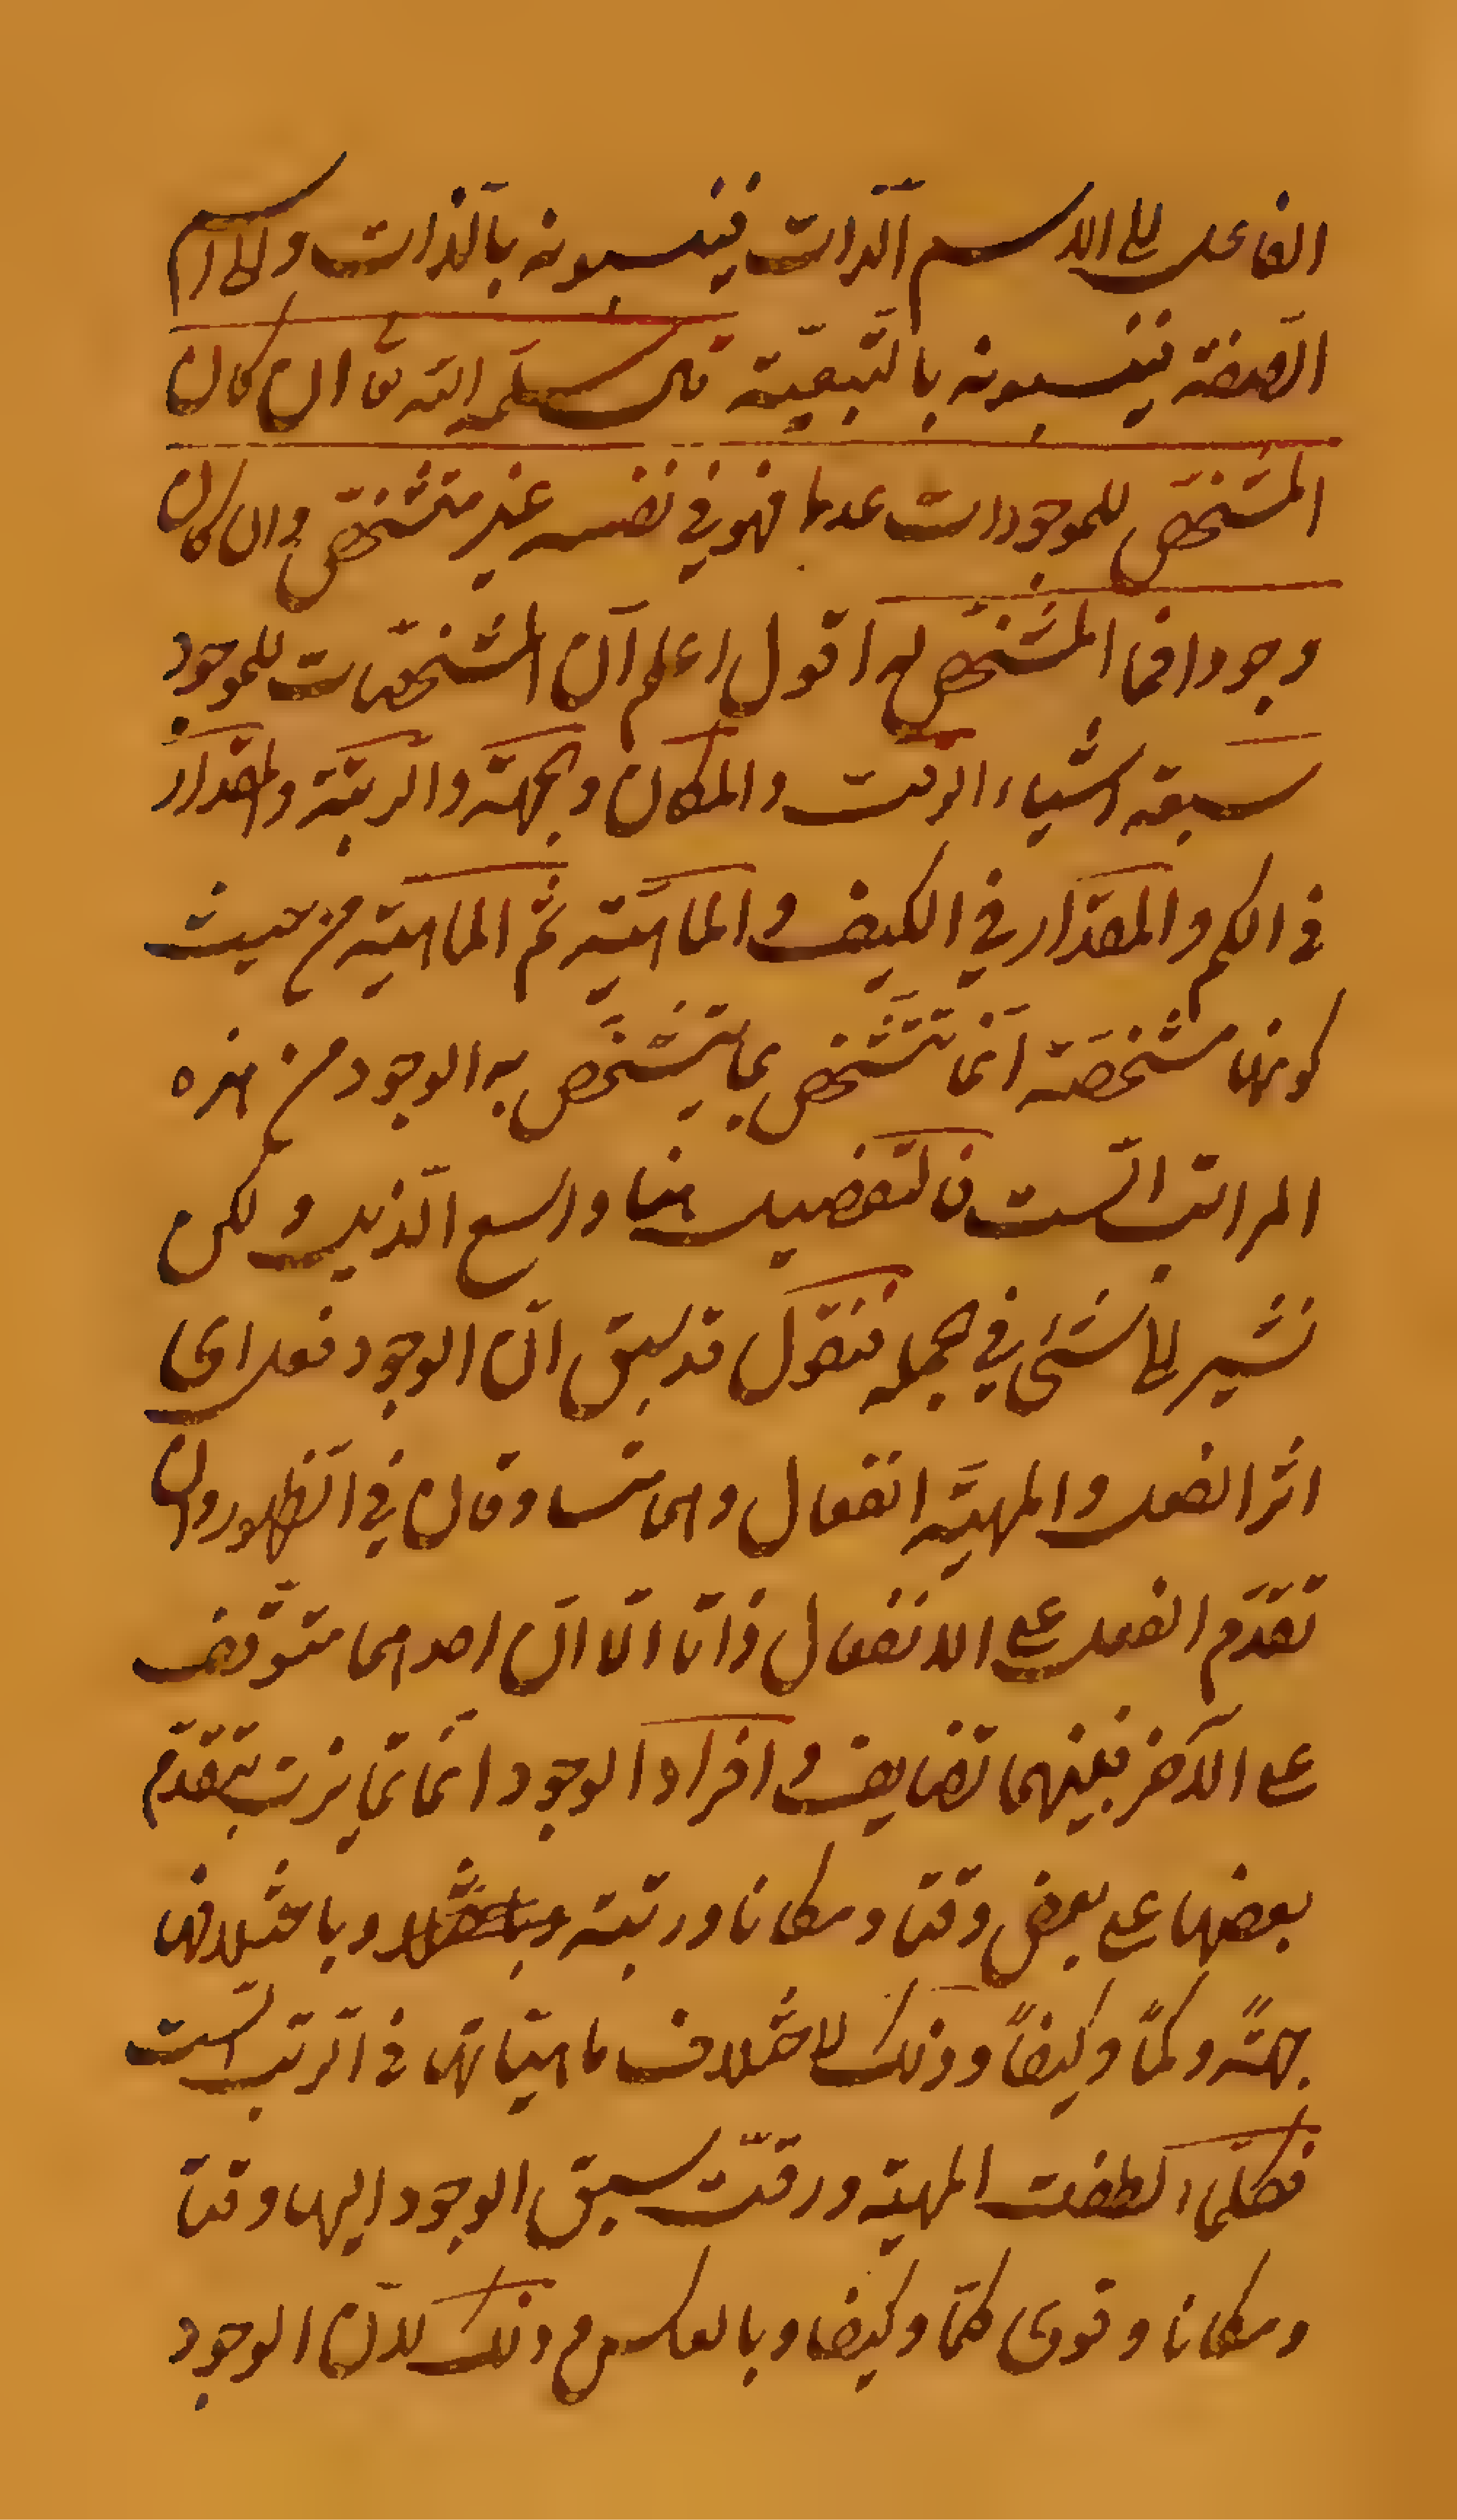 الفاعل الى الاسم الذات فينسبونه بالذات والى اسم
الصفة فينسبونه بالتبعية قال سلمه الله تع ان كان
المشخص للموجودات عدما فهو في نفسه غير متشخص وان كان
وجودا فما المشخص له اقول اعلم ان المشخصات للموجود
سبعة اشياء الوقت والمكان والجهة والرتبة والمقدار
في الكم والمقدار في الكيف والماهيّة ثم الماهية من حيث
كونها مشخصة انّما تتشخص بما يتشخّص به الوجود من هذه
المراتب الست فالتفضيل هنا واسع الذيل ولكن
نشير الى شئ في الجملة فنقول قد سبق انّ الوجود فعل اى
اثر الفعل والمهيّة انفعال وهما متساوقان في الظهور وان
تقدّم الفعل على الانفعال ذاتا الّا انّ احدهما متوقف
على الآخر فبينهما تضايف وافراد الوجود انّما تمايزت بتقدّم
بعضها على بعض وقتا ومكانا ورتبة وباختلافها
جهةً وكمّاً وكيفاً وذلك لاختلاف ماهيّاتها في الرتب الست
فكلّما لطفت المهية ورقّت سبق الوجود اليها وقتا
ومكانا وقوى كمّا وكيفا وبالعكس وذلك لانّ الوجود